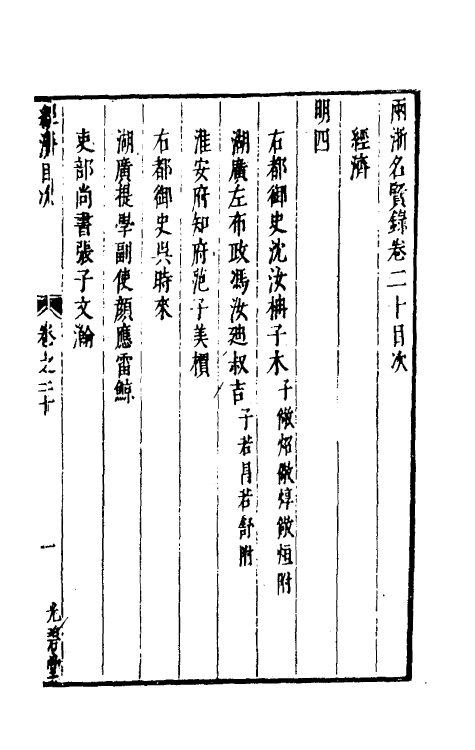 兩浙名賢錄卷二十目次
經濟
明四
右都御史沈汝楠子木子儆炤儆焞儆烜附
湖廣左布政馮汝迪叔吉子若呂若舒附
淮安府知府范子美檟
右都御史吳時來
湖廣提學副使顏應雷鯨
吏部尚書張子文瀚
經濟目次
卷之二十
一
光碧堂